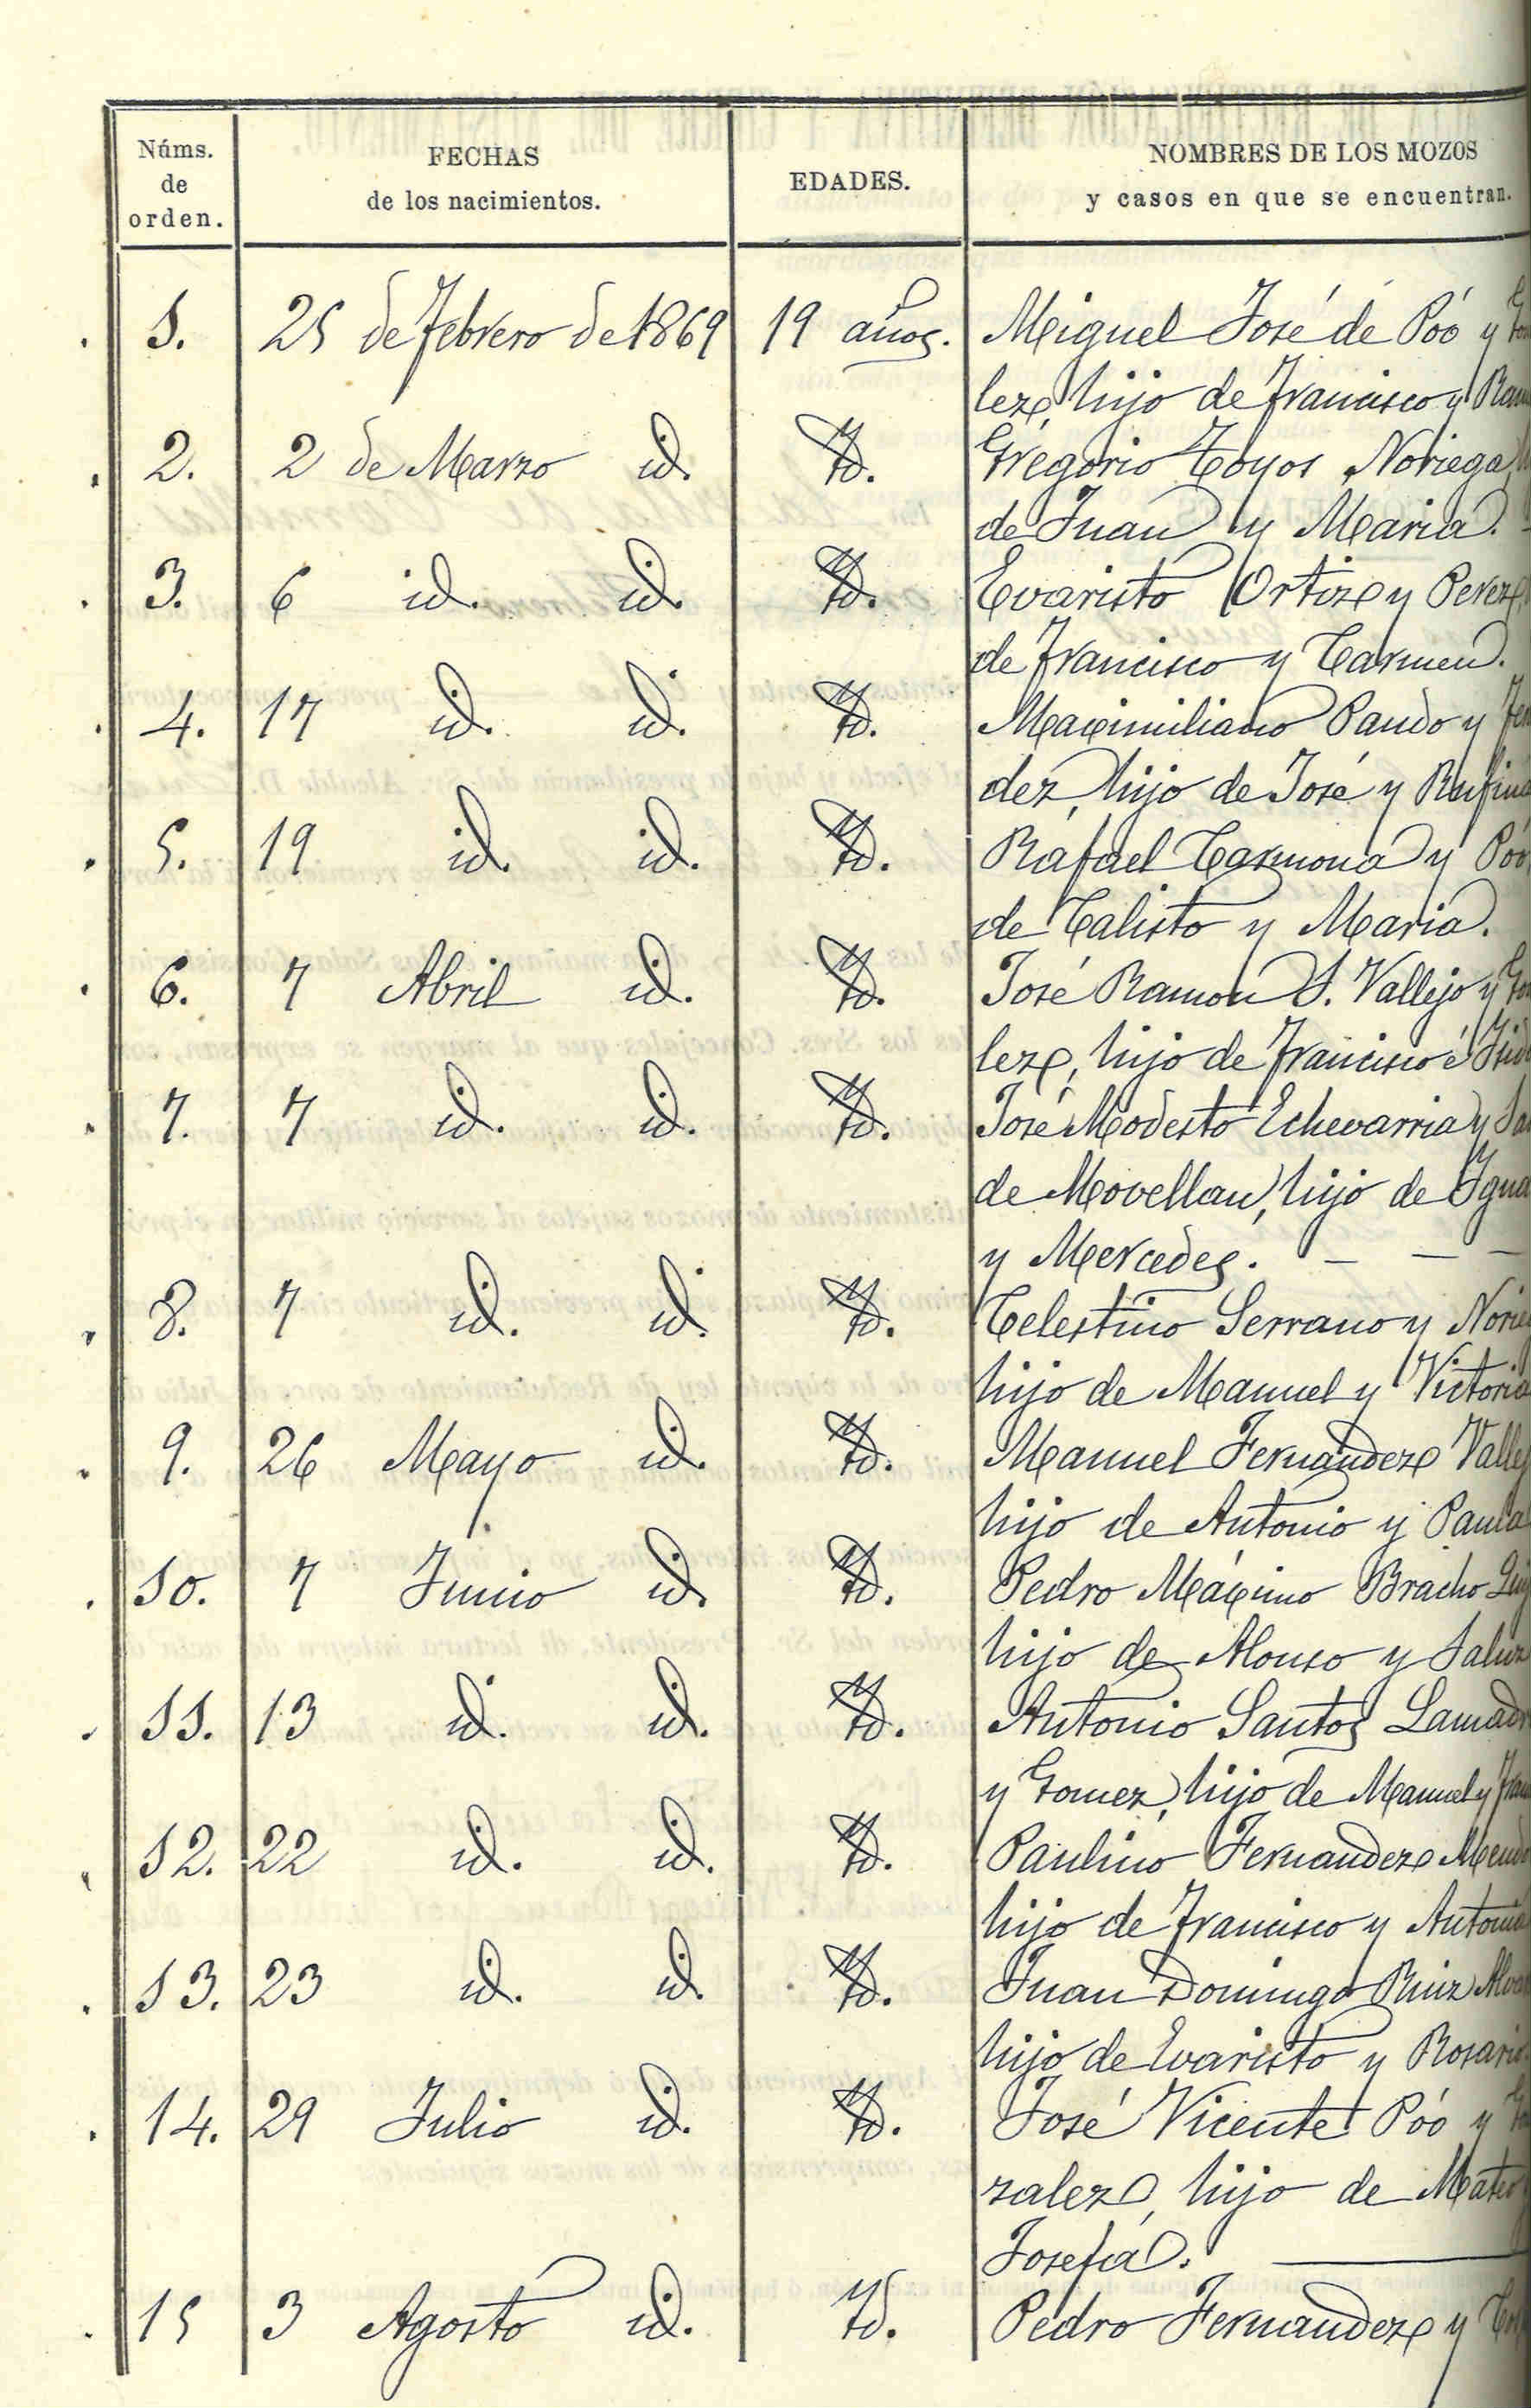 Núms. de orden.
FECHAS de los nacimientos.
EDADES.
NOMBRES DE LOS MOZOS y casos en que se encuentran.
1. 25 de Febrero de 1869 19 años. Miguel José de Póo y
lez, hijo de Francisco y
2. 2 de Marzo id. Id. Gregorio Toyos Noriega,
de Juan y Maria.
3. 6 id. id. Id. Evaristo Ortiz y Perez,
de Francisco y Carmen.
4. 17 id. id. Id. Maximiliano Pando y
dez, hijo de José y Rufina
5. 19 id. id. Id. Rafael Carmona y Póo,
de Calisto y Maria.
6. 7 Abril id. Id. José Ramon S. Vallejo y
lez, hijo de Francisco é
7. 7 id. id. Id. José Modesto Echevarria y
de Movellan, hijo de
y Mercedes. — — —
8. 7 id. id. Id. Celestino Serrano y
hijo de Manuel y Victoria
9. 26 Mayo id. Id. Manuel Fernandez
hijo de Antonio y Paula
10. 7 Junio id. Id. Pedro Máximo Bracho
hijo de Alonso y
11. 13 id. id. Id. Antonio Santos
y Gomez, hijo de Manuel y
12. 22 id. id. Id. Paulino Fernandez
hijo de Francisco y Antonia
13. 23 id. id. Id. Juan Domingo Ruiz
hijo de Evaristo y Rosario.
14. 29 Julio id. Id. José Vicente Póo y
zalez, hijo de Mateo
Josefa.
15 3 Agosto id. Id. Pedro Fernandez y